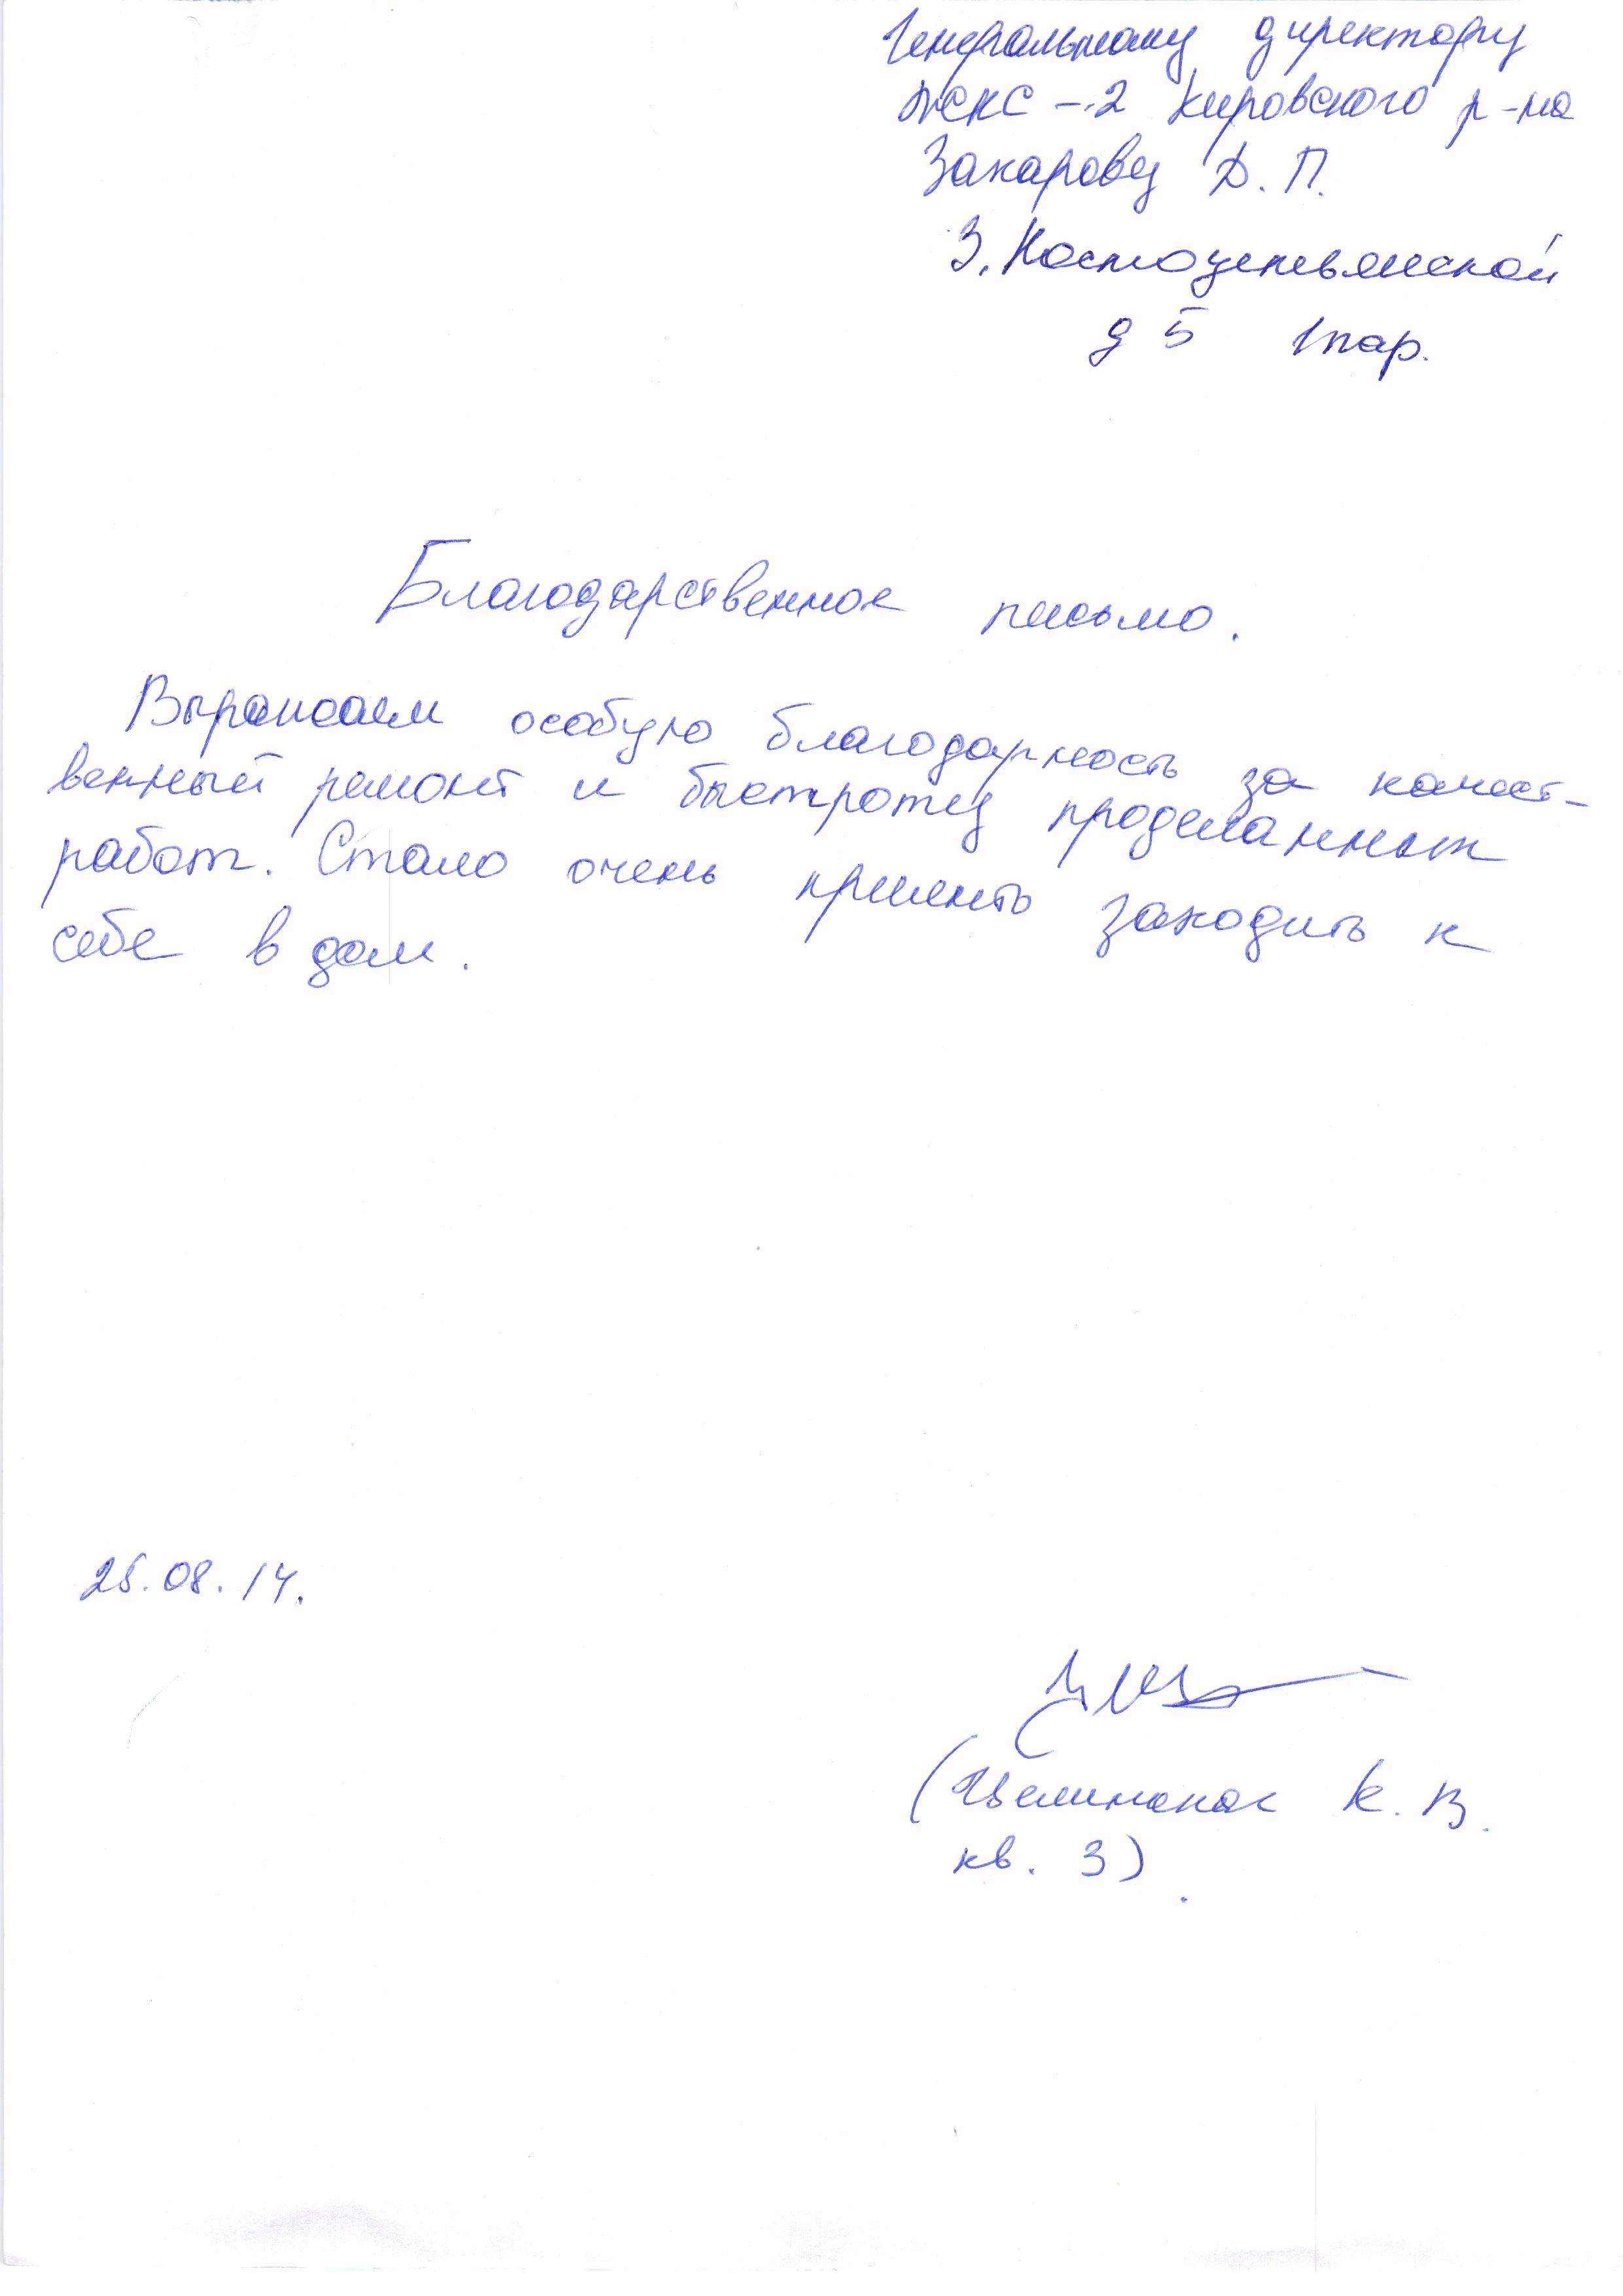 Генеральному директору
ЖКС - 2 Кировского р-на
Захарову Д. П.
З. Космодемьянской
д 5 1 пар.
Благодарственное письмо.
Выражаем особую благодарность за качест-
венный ремонт и быстроту проделанных
работ. Стало очень приятно заходить к
себе в дом.
25.08.14.
К. В.
кв. 3)